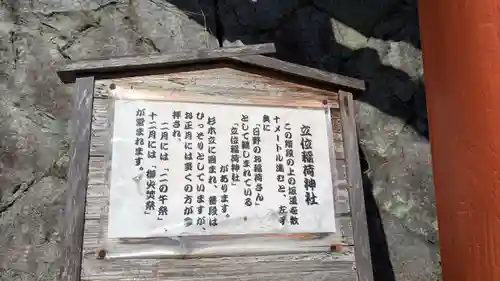 立位稲荷神社
この階段の上の坂道を数
十メートル進むと、左手
奥に
「日野のお稲荷さん」
として親しまれている
「立位稲荷神社」
があります。
杉木立に囲まれ、普段は
ひっそりとしていますが、
お正月には多くの方が参
拝され、
二月には「二の午祭」
十二月には「御火焚祭」
が営まれます。